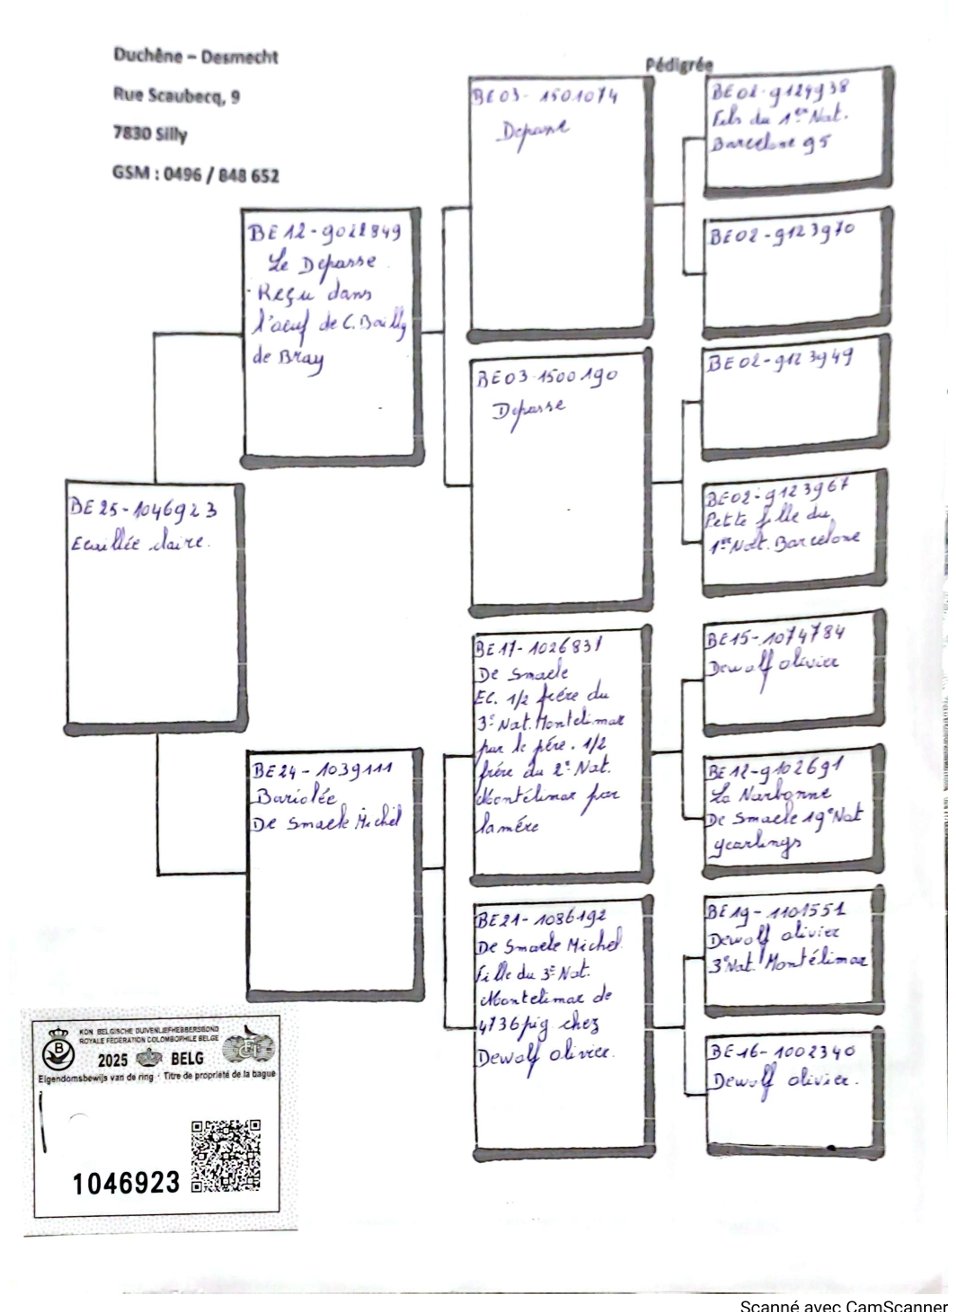 Duchêne – Desmecht
Rue Scaubecq, 9
7830 Silly
GSM : 0496 / 848 652
Pédigrée
BE 25-1046923
Ecaillée claire.
BE 12-9022849
Le Depasse
Reçu dans
l'oeuf de C. Bailly
de Bray
BE 24 - 1039111
Bariolée
De Smaele Michel
BE 03 - 1501074
Depasse
BE 03-1500190
Depasse
BE 17-1026831
De Smaele
EC. 1/2 frère du
3e Nat. Montelimar
par le père. 1/2
frère du 2e Nat.
Montélimar par
la mère
BE 21-1086192
De Smaele Michel
Fille du 3e Nat.
Montelimar de
4736 pig chez
Dewolf olivier.
BE 02-9124938
Fils du 1er Nat.
Barcelone 95
BE 02-9123970
BE 02-9123949
BE 02-9123967
Petite fille du
1er Nat. Barcelone
BE 15-1074784
Dewolf olivier
BE 12-9102691
La Narbonne
De Smaele 19e Nat
yearlings
BE 19-1101551
Dewolf olivier
3e Nat. Montélimar
BE 16-1002340
Dewolf olivier.
KON BELGISCHE DUIVENLIEFHEBBERSBOND
ROYALE FEDERATION COLOMBOPHILE BELGE
2025 BELG
Eigendomsbewijs van de ring - Titre de propriété de la bague
1046923
Scanné avec CamScanner